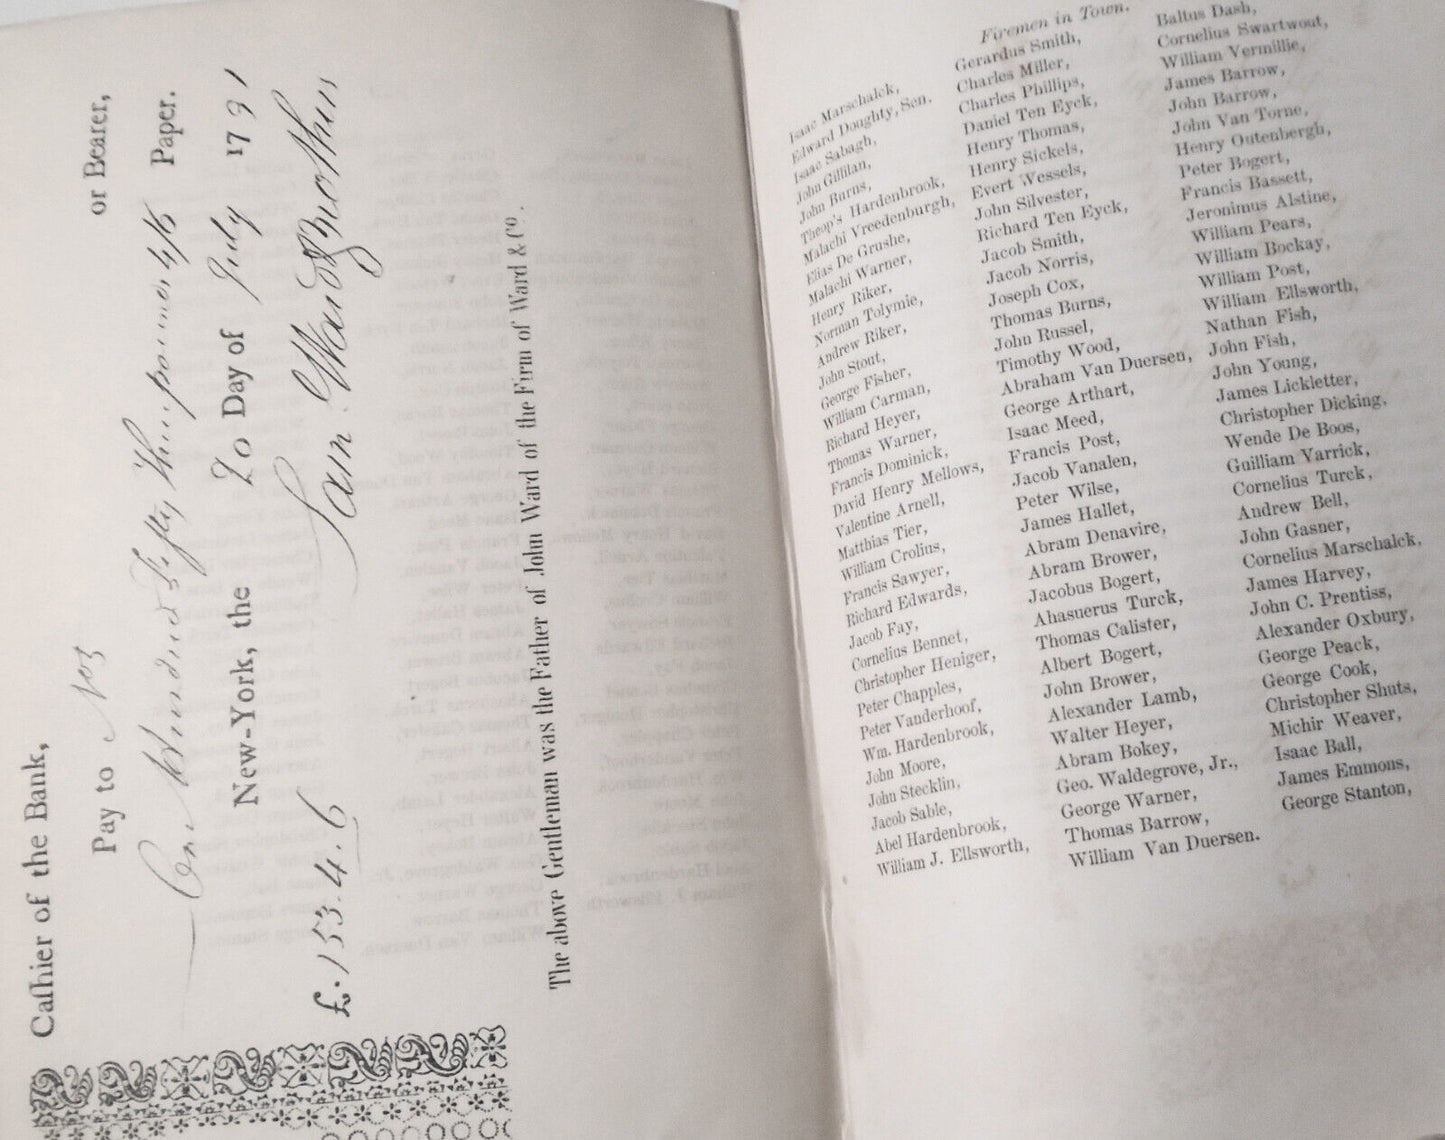 Caſhier of the Bank,
Pay to No 3 or Bearer,
One Hundred & fifty three pounds 4/6 Paper.
New-York, the 20 Day of July 1791
£. 153. 4. 6 Sam. Ward & Brothers
The above Gentleman was the Father of John Ward of the Firm of Ward & Co.
Firemen in Town.
Isaac Marschalck,
Edward Doughty, Sen.
Isaac Sabagh,
John Gillilan,
John Burns,
Theop's Hardenbrook,
Malachi Vreedenburgh,
Elias De Grushe,
Malachi Warner,
Henry Riker,
Norman Tolymie,
Andrew Riker,
John Stout,
George Fisher,
William Carman,
Richard Heyer,
Thomas Warner,
Francis Dominick,
David Henry Mellows,
Valentine Arnell,
Matthias Tier,
William Crolius,
Francis Sawyer,
Richard Edwards,
Jacob Fay,
Cornelius Bennet,
Christopher Heniger,
Peter Chapples,
Peter Vanderhoof,
Wm. Hardenbrook,
John Moore,
John Stecklin,
Jacob Sable,
Abel Hardenbrook,
William J. Ellsworth,
Gerardus Smith,
Charles Miller,
Charles Phillips,
Daniel Ten Eyck,
Henry Thomas,
Henry Sickels,
Evert Wessels,
John Silvester,
Richard Ten Eyck,
Jacob Smith,
Jacob Norris,
Joseph Cox,
Thomas Burns,
John Russel,
Timothy Wood,
Abraham Van Duersen,
George Arthart,
Isaac Meed,
Francis Post,
Jacob Vanalen,
Peter Wilse,
James Hallet,
Abram Denavire,
Abram Brower,
Jacobus Bogert,
Ahasuerus Turck,
Thomas Calister,
Albert Bogert,
John Brower,
Alexander Lamb,
Walter Heyer,
Abram Bokey,
Geo. Waldegrove, Jr.,
George Warner,
Thomas Barrow,
William Van Duersen.
Baltus Dash,
Cornelius Swartwout,
William Vermillie,
James Barrow,
John Barrow,
John Van Torne,
Henry Outenbergh,
Peter Bogert,
Francis Bassett,
Jeronimus Alstine,
William Pears,
William Bockay,
William Post,
William Ellsworth,
Nathan Fish,
John Fish,
John Young,
James Lickletter,
Christopher Dicking,
Wende De Boos,
Guilliam Varrick,
Cornelius Turck,
Andrew Bell,
John Gasner,
Cornelius Marschalck,
James Harvey,
John C. Prentiss,
Alexander Oxbury,
George Peack,
George Cook,
Christopher Shuts,
Michir Weaver,
Isaac Ball,
James Emmons,
George Stanton,